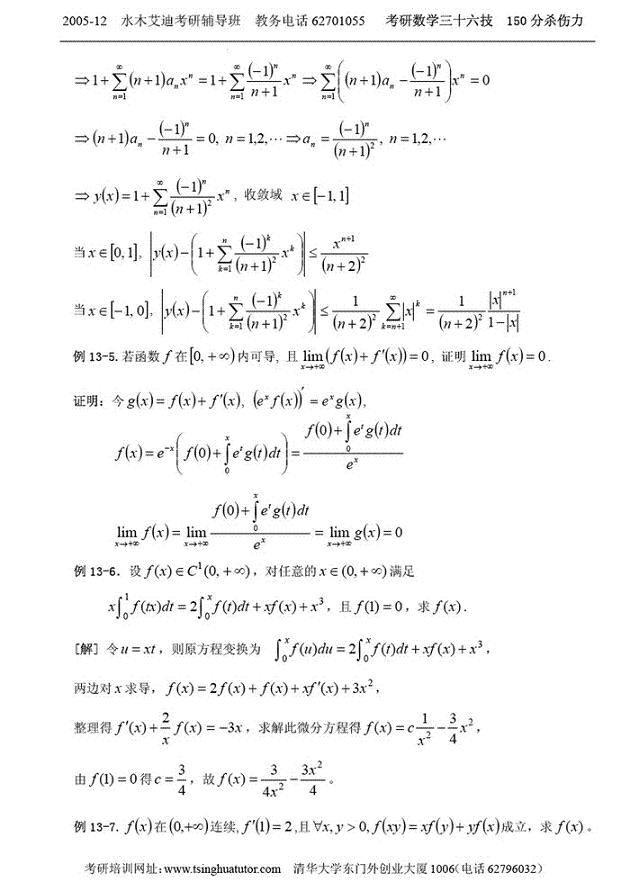 2005-12 水木艾迪考研辅导班 教务电话 62701055 考研数学三十六技 150 分杀伤力
⇒ 1 + ∑_{n=1}^{∞} (n+1)a_n x^n = 1 + ∑_{n=1}^{∞} (-1)^n/(n+1) x^n ⇒ ∑_{n=1}^{∞} ((n+1)a_n - (-1)^n/(n+1)) x^n = 0
⇒ (n+1)a_n - (-1)^n/(n+1) = 0, n = 1,2,⋯ ⇒ a_n = (-1)^n/(n+1)^2, n = 1,2,⋯
⇒ y(x) = 1 + ∑_{n=1}^{∞} (-1)^n/(n+1)^2 x^n, 收敛域 x ∈ [-1,1]
当 x ∈ [0,1], |y(x) - (1 + ∑_{k=1}^{n} (-1)^k/(n+1)^2 x^k)| ≤ x^{n+1}/(n+2)^2
当 x ∈ [-1, 0], |y(x) - (1 + ∑_{k=1}^{n} (-1)^k/(n+1)^2 x^k)| ≤ 1/(n+2)^2 ∑_{k=n+1}^{∞} |x|^k = 1/(n+2)^2 |x|^{n+1}/(1-|x|)
例 13-5. 若函数 f 在 [0, +∞) 内可导, 且 lim_{x→+∞} (f(x) + f′(x)) = 0, 证明 lim_{x→+∞} f(x) = 0.
证明: 令 g(x) = f(x) + f′(x), (e^x f(x))′ = e^x g(x),
f(x) = e^{-x} (f(0) + ∫_0^x e^t g(t)dt) = (f(0) + ∫_0^x e^t g(t)dt)/e^x
lim_{x→+∞} f(x) = lim_{x→+∞} (f(0) + ∫_0^x e^t g(t)dt)/e^x = lim_{x→+∞} g(x) = 0
例 13-6. 设 f(x) ∈ C^1(0, +∞), 对任意的 x ∈ (0, +∞) 满足
x∫_0^1 f(tx)dt = 2∫_0^x f(t)dt + xf(x) + x^3, 且 f(1) = 0, 求 f(x).
[解] 令 u = xt, 则原方程变换为 ∫_0^x f(u)du = 2∫_0^x f(t)dt + xf(x) + x^3,
两边对 x 求导, f(x) = 2f(x) + f(x) + xf′(x) + 3x^2,
整理得 f′(x) + 2/x f(x) = -3x, 求解此微分方程得 f(x) = c 1/x^2 - 3/4 x^2,
由 f(1) = 0 得 c = 3/4, 故 f(x) = 3/(4x^2) - 3x^2/4。
例 13-7. f(x) 在 (0,+∞) 连续, f′(1) = 2, 且 ∀x, y > 0, f(xy) = xf(y) + yf(x) 成立, 求 f(x)。
考研培训网址: www.tsinghuatutor.com 清华大学东门外创业大厦 1006(电话 62796032)